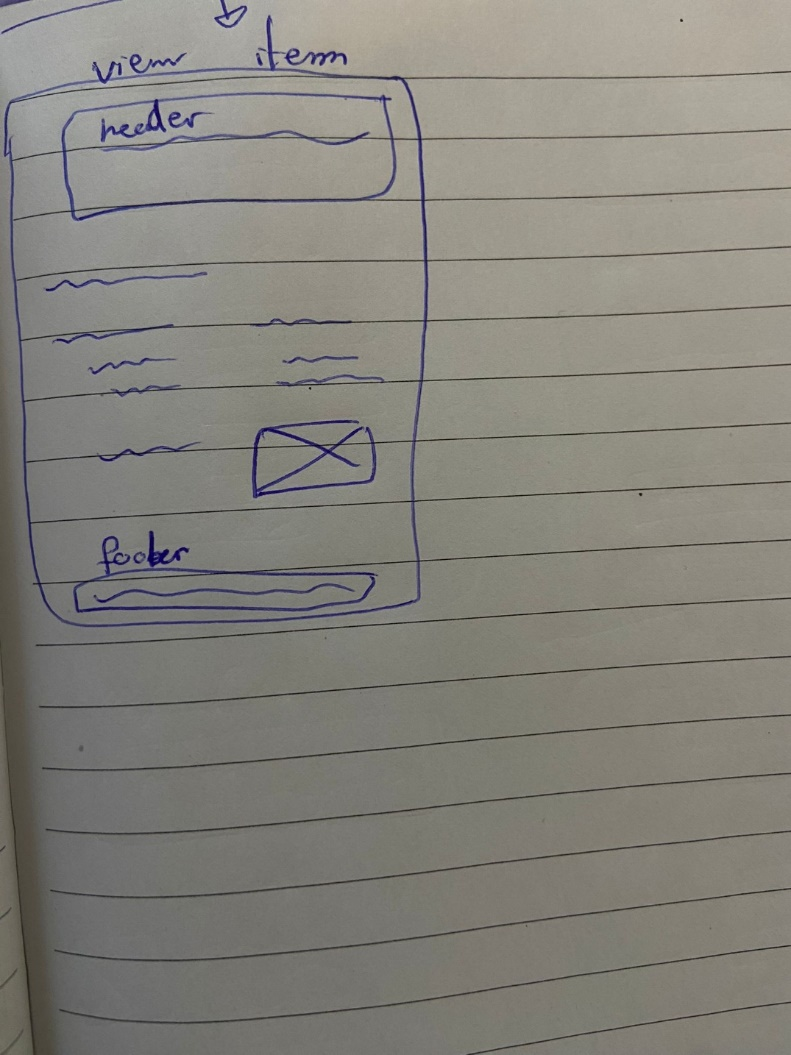 view item
header
footer